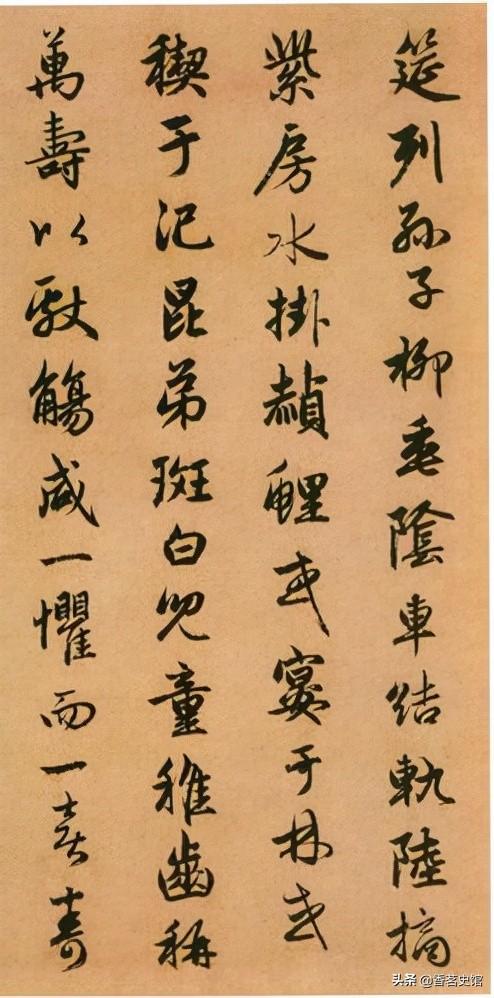 筵列孫子柳垂陰車結軌陸摘
紫房水掛赬鯉或宴于林或
禊于汜昆弟斑白兒童稚齒稱
萬壽以獻觴咸一懼而一喜壽
头条 @香茗史馆